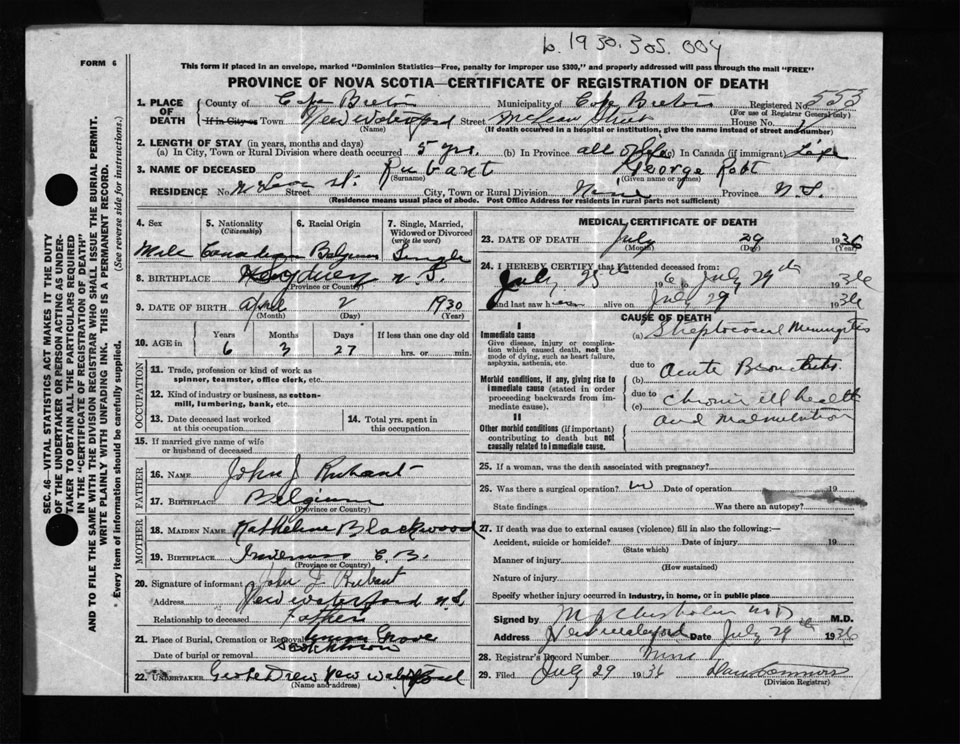 b. 1930.305.004
FORM 6
This form if placed in an envelope, marked "Dominion Statistics—Free, penalty for improper use $300," and properly addressed will pass through the mail "FREE"
PROVINCE OF NOVA SCOTIA—CERTIFICATE OF REGISTRATION OF DEATH
SEC. 46—VITAL STATISTICS ACT MAKES IT THE DUTY
OF THE UNDERTAKER OR PERSON ACTING AS UNDER-
TAKER TO OBTAIN ALL THE PARTICULARS REQUIRED
IN THE "CERTIFICATE OF REGISTRATION OF DEATH"
AND TO FILE THE SAME WITH THE DIVISION REGISTRAR WHO SHALL ISSUE THE BURIAL PERMIT.
WRITE PLAINLY WITH UNFADING INK. THIS IS A PERMANENT RECORD.
* Every item of information should be carefully supplied. (See reverse side for instructions.)
1. PLACE OF DEATH County of Cape Breton Municipality of Cape Breton Registered No. 553
(For use of Registrar General only)
If in City or Town New Waterford Street McLean Street House No.
(Name) (If death occurred in a hospital or institution, give the name instead of street and number)
2. LENGTH OF STAY (in years, months and days)
(a) In City, Town or Rural Division where death occurred 5 yrs. (b) In Province all of life (c) In Canada (if immigrant) Life
3. NAME OF DECEASED Rubant George Robt
(Surname) (Given name or names)
RESIDENCE No. McLean St. Street City, Town or Rural Division Province N.S.
(Residence means usual place of abode. Post Office Address for residents in rural parts not sufficient)
4. Sex 5. Nationality (Citizenship) 6. Racial Origin 7. Single, Married, Widowed or Divorced (write the word)
Male Canadian Single
8. BIRTHPLACE Sydney N.S.
(Province or Country)
9. DATE OF BIRTH April 2 1930
(Month) (Day) (Year)
10. AGE in Years Months Days If less than one day old
6 3 27 hrs. or min.
OCCUPATION
11. Trade, profession or kind of work as spinner, teamster, office clerk, etc.
12. Kind of industry or business, as cotton-mill, lumbering, bank, etc.
13. Date deceased last worked at this occupation 14. Total yrs. spent in this occupation
15. If married give name of wife or husband of deceased
FATHER
16. NAME John J Rubant
17. BIRTHPLACE Belgium
(Province or Country)
MOTHER
18. MAIDEN NAME Katheline Blackwood
19. BIRTHPLACE Inverness C.B.
(Province or Country)
20. Signature of informant John J Rubant
Address New Waterford N.S.
Relationship to deceased Father
21. Place of Burial, Cremation or Removal Grove
Date of burial or removal
22. UNDERTAKER Drew New Waterford
(Name and address)
MEDICAL CERTIFICATE OF DEATH
23. DATE OF DEATH July 29 1936
(Month) (Day) (Year)
24. I HEREBY CERTIFY that I attended deceased from:
July 25 1936 to July 29th 1936
and last saw h alive on July 29 1936
CAUSE OF DEATH
I
Immediate cause (a) Streptococcal Meningitis
Give disease, injury or complication which caused death, not the mode of dying, such as heart failure, asphyxia, asthenia, etc.
due to (b) Acute Bronchitis
Morbid conditions, if any, giving rise to immediate cause (stated in order proceeding backwards from immediate cause).
due to (c) chronic ill health
and malnutrition
II
Other morbid conditions (if important) contributing to death but not causally related to immediate cause.
25. If a woman, was the death associated with pregnancy?
26. Was there a surgical operation? no Date of operation 19
State findings Was there an autopsy?
27. If death was due to external causes (violence) fill in also the following:—
Accident, suicide or homicide? Date of injury 19
(State which)
Manner of injury
(How sustained)
Nature of injury
Specify whether injury occurred in industry, in home, or in public place
Signed by M J Chisholm M.D. M.D.
Address New Waterford Date July 29th 1936
28. Registrar's Record Number
29. Filed July 29 1936
(Division Registrar)